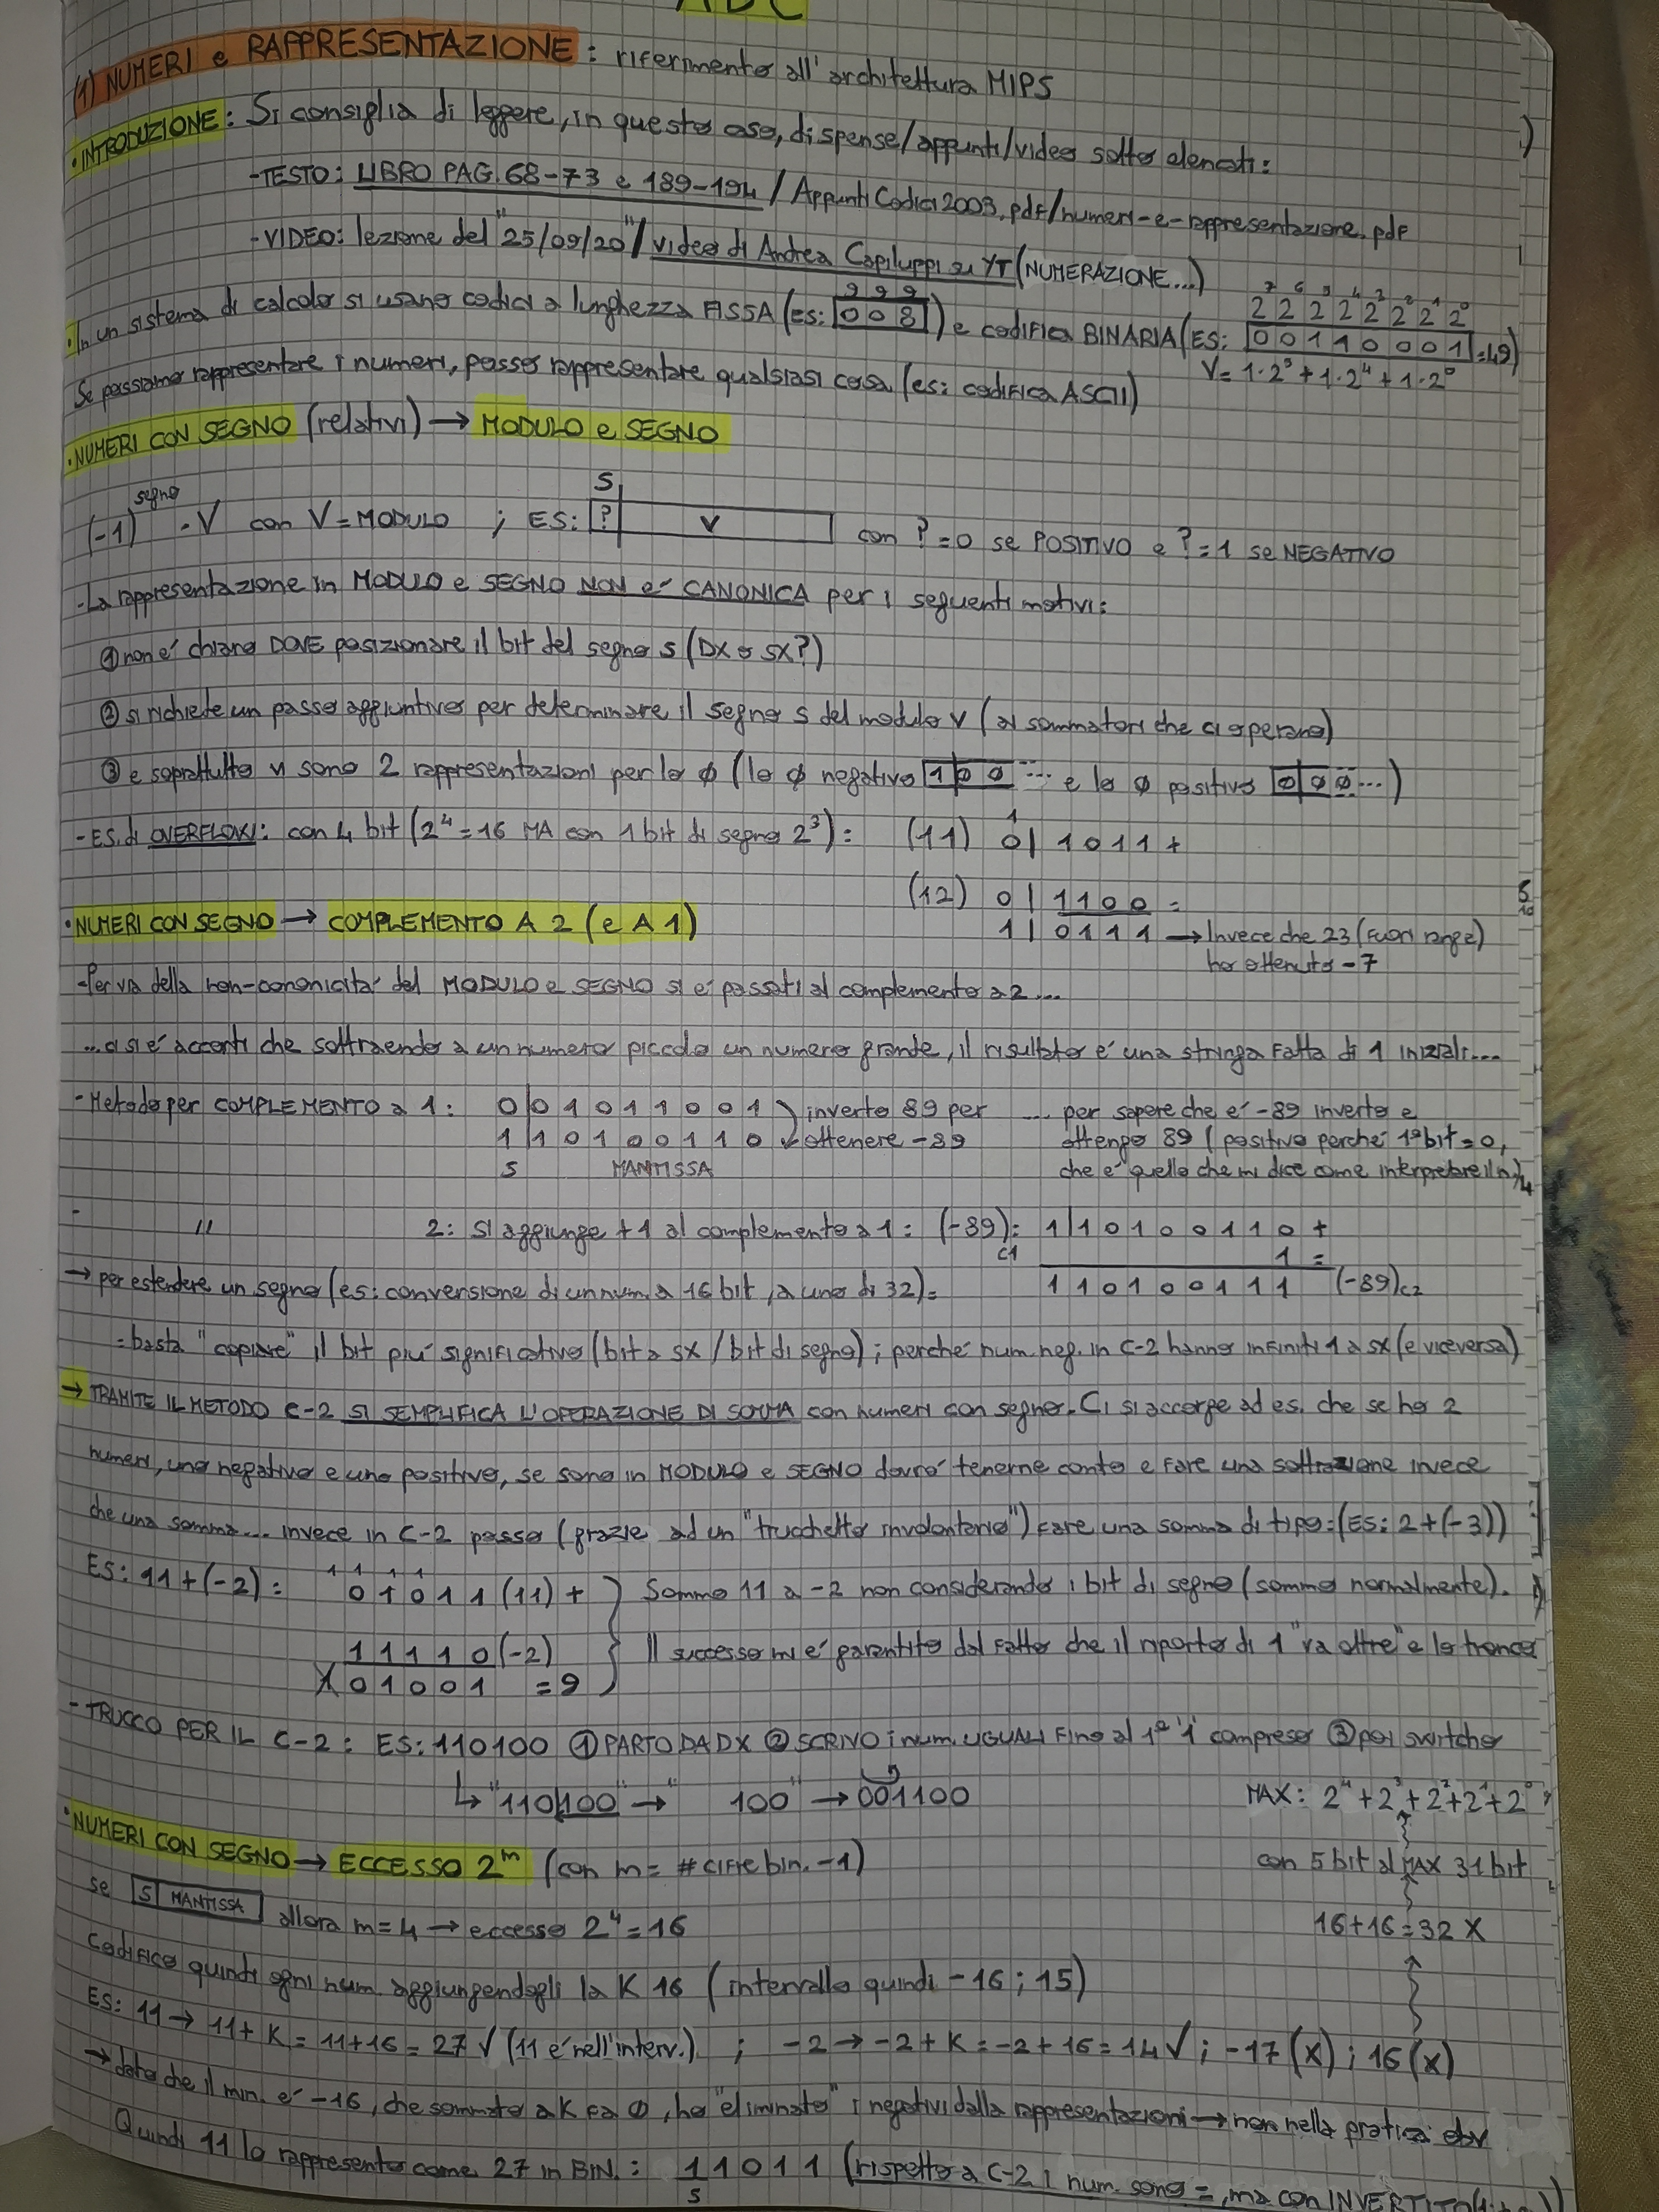 ADC
(1) NUMERI e RAPPRESENTAZIONE: riferimento all'architettura MIPS
·INTRODUZIONE: Si consiglia di leggere, in questo caso, dispense/appunti/video sotto elencati:
-TESTO: LIBRO PAG. 68-73 e 189-194 / Appunti Codici 2003.pdf/numeri-e-rappresentazione.pdf
-VIDEO: lezione del "25/09/20"/ video di Andrea Capiluppi su YT (NUMERAZIONE...)
9 9 9
2⁷ 2⁶ 2⁵ 2⁴ 2³ 2² 2¹ 2⁰
·In un sistema di calcolo si usano codici a lunghezza FISSA (ES: 0 0 8) e codifica BINARIA (ES: 0 0 1 1 0 0 0 1 =49)
V= 1·2⁵ + 1·2⁴ + 1·2⁰
Se possiamo rappresentare i numeri, posso rappresentare qualsiasi cosa (es: codifica ASCII)
·NUMERI CON SEGNO (relativi) → MODULO e SEGNO
segno S
(-1) · V con V = MODULO ; ES: ? V con ?=0 se POSITIVO e ?=1 se NEGATIVO
-La rappresentazione in MODULO e SEGNO NON e' CANONICA per i seguenti motivi:
① non e' chiaro DOVE posizionare il bit del segno s (DX o SX?)
② si richiede un passo aggiuntivo per determinare il segno s del modulo V (ai sommatori che ci operano)
③ e soprattutto vi sono 2 rappresentazioni per lo ø (lo ø negativo 1|ø ø ... e lo ø positivo ø|ø ø ...)
- ES. di OVERFLOW: con 4 bit (2⁴ = 16 MA con 1 bit di segno 2³): (11) 0| 1 0 1 1 +
1
(12) 0 | 1 1 0 0 =
1 | 0 1 1 1 → Invece che 23 (fuori range)
ho ottenuto -7
·NUMERI CON SEGNO → COMPLEMENTO A 2 (e A 1)
-Per via della non-canonicita' del MODULO e SEGNO si e' passati al complemento a 2...
...ci si e' accorti che sottraendo a un numero piccolo un numero grande, il risultato e' una stringa fatta di 1 iniziali...
-Metodo per COMPLEMENTO a 1: 0|0 1 0 1 1 0 0 1 inverto 89 per ... per sapere che e' -89 inverto e
1|1 0 1 0 0 1 1 0 ottenere -89 ottengo 89 (positivo perche' 1° bit = 0,
S MANTISSA che e' quello che mi dice come interpretare il n.)
- " 2: si aggiunge +1 al complemento a 1: (-89)C1: 1|1 0 1 0 0 1 1 0 +
1 =
→ per estendere un segno (es: conversione di un num. a 16 bit, a uno di 32)= 1 1 0 1 0 0 1 1 1 (-89)C2
= basta "copiare" il bit piu' significativo (bit a SX/bit di segno); perche' num. neg. in C-2 hanno infiniti 1 a SX (e viceversa)
→ TRAMITE IL METODO C-2 SI SEMPLIFICA L'OPERAZIONE DI SOMMA con numeri con segno. Ci si accorge ad es. che se ho 2
numeri, uno negativo e uno positivo, se sono in MODULO e SEGNO dovro' tenerne conto e fare una sottrazione invece
che una somma... invece in C-2 posso (grazie ad un "trucchetto involontario") fare una somma di tipo: (ES: 2+(-3))
1 1 1 1
ES: 11+(-2): 0 1 0 1 1 (11) + Sommo 11 a -2 non considerando i bit di segno (sommo normalmente).
1 1 1 1 0 (-2) Il successo mi e' garantito dal fatto che il riporto di 1 "va oltre" e lo tronco
1 0 1 0 0 1 = 9
- TRUCCO PER IL C-2: ES: 110100 ① PARTO DA DX ② SCRIVO i num. UGUALI fino al 1° '1' compreso ③ poi switcho
↳ "110|100" → " 100" → 001100
MAX: 2⁴+2³+2²+2¹+2⁰
·NUMERI CON SEGNO → ECCESSO 2ᵐ (con m = # cifre bin. -1)
con 5 bit al MAX 31 bit
se S MANTISSA allora m=4 → eccesso 2⁴=16
16+16=32 X
Codifico quindi ogni num. aggiungendogli la K 16 (intervallo quindi -16 ; 15)
ES: 11 → 11 + K = 11+16 = 27 √ (11 e' nell'interv.) ; -2 → -2 + K = -2 + 16 = 14 √ ; -17 (X) ; 16 (X)
→ dato che il min. e' -16, che sommato a K fa ø, ho "eliminato" i negativi dalla rappresentazioni → non nella pratica obv
Quindi 11 lo rappresento come 27 in BIN.: 1 1 0 1 1 (rispetto a C-2 i num. sono =, ma con INVERTITO
S